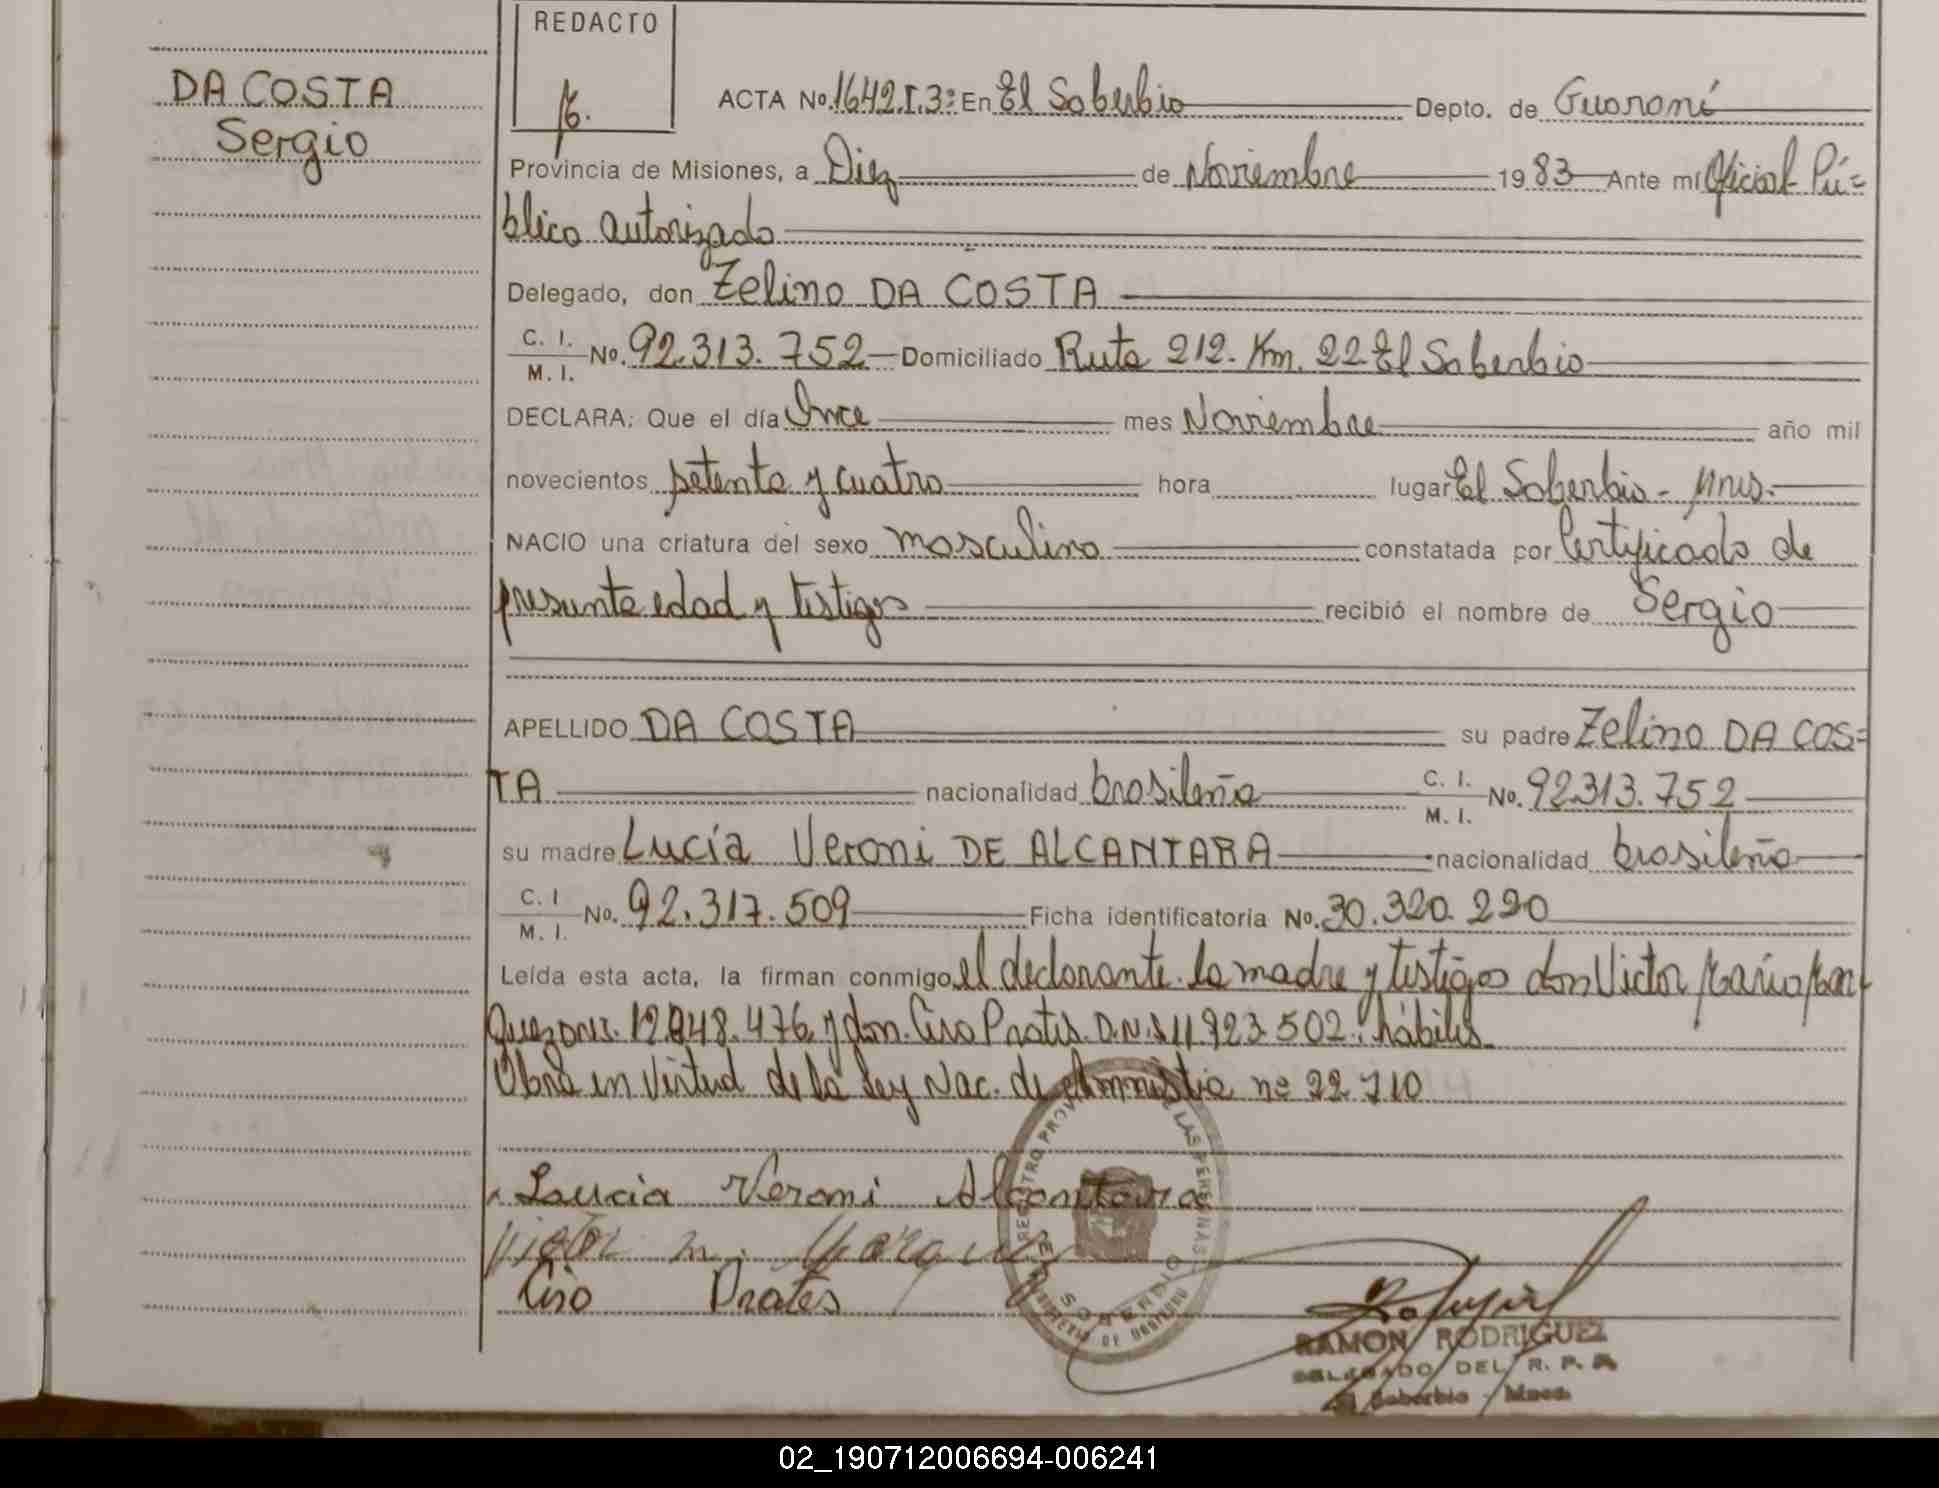 REDACTO
DA COSTA
Sergio
ACTA No. 1642.T.3º En El Soberbio Depto. de Guaraní
Provincia de Misiones, a Diez de Noviembre 1983 Ante mí Oficial Pú=
blico autorizado
Delegado, don Zelino DA COSTA
C. I. M. I. No. 92.313.752 Domiciliado Ruta 212. Km. 22 El Soberbio
DECLARA: Que el día Once mes Noviembre año mil
novecientos setenta y cuatro hora lugar El Soberbio - Mnes.
NACIO una criatura del sexo masculino constatada por Certificado de
presunta edad y testigos recibió el nombre de Sergio
APELLIDO DA COSTA su padre Zelino DA COS=
TA nacionalidad brasileña C. I. M. I. No. 92.313.752
su madre Lucía Veroni DE ALCANTARA nacionalidad brasileña
C. I. M. I. No. 92.317.509 Ficha identificatoria No. 30.320.290
Leída esta acta, la firman conmigo el declarante. la madre y testigos don Victor Mario Mar-
12.848.476 y don. Ciro Prates D.N.I 11.923.502. hábiles
Obra en virtud de la Ley Nac. de Amnistia nº 22.710
REGISTRO PROV. DE LAS PERSONAS
EL SOBERBIO
MINISTERIO DE GOBIERNO
Lucia Veroni Alcantara
Victor M. Marquez
Ciro Prates
RAMON RODRIGUEZ
DELEGADO DEL R. P. P.
El Soberbio - Mnes.
02_190712006694-006241